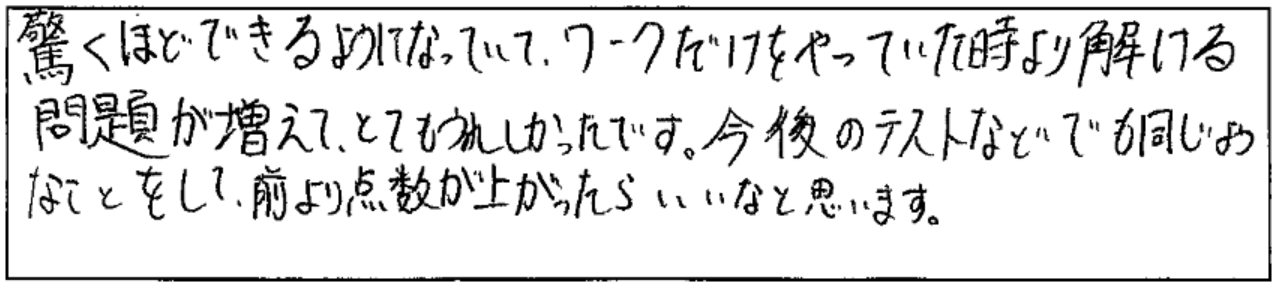 驚くほどできるようになっていて、ワークだけをやっていた時より解ける
問題が増えて、とてもうれしかったです。今後のテストなどでも同じよう
なことをして、前より点数が上がったらいいなと思います。